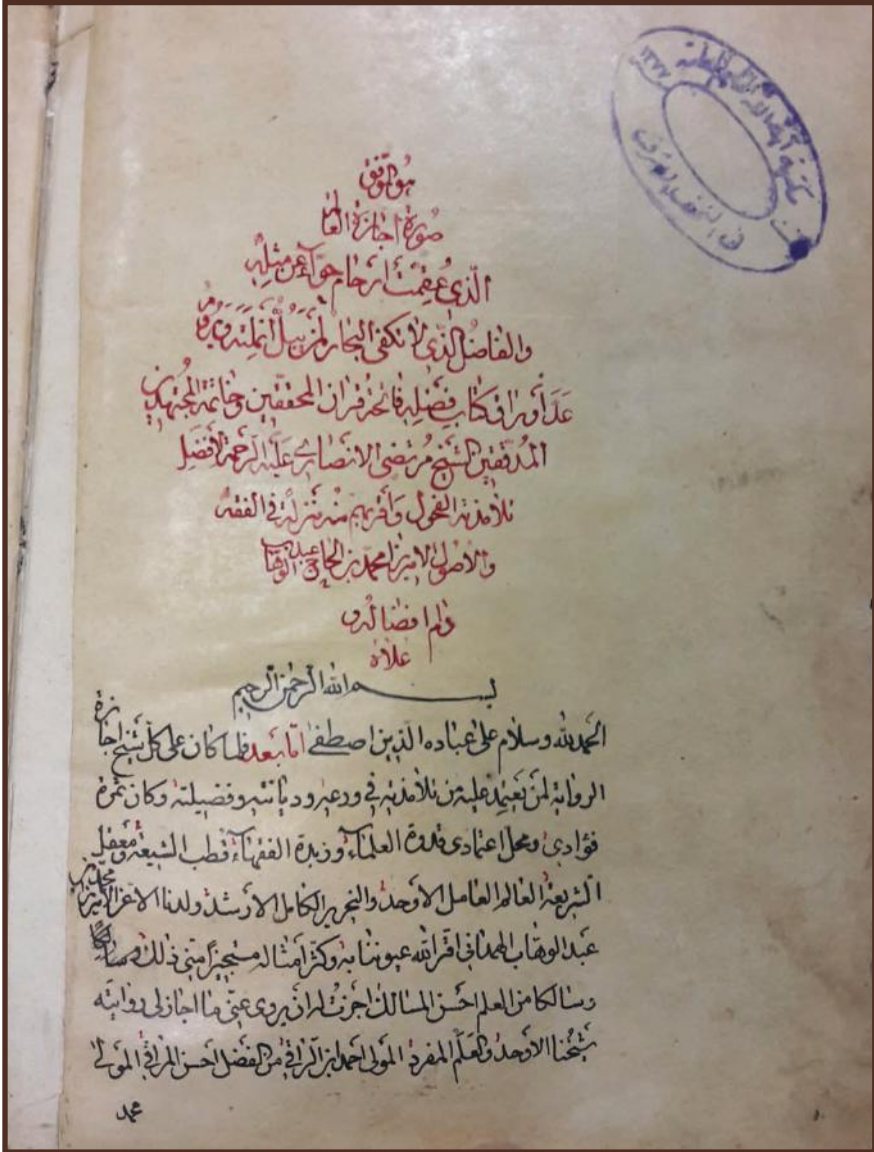 هو الموفق
صورة اجازة العالم
الذي عقمت ارحام حواء عن مثله
والفاضل الذي لا تكفي البحار لمن يبل انملته ويروم
عد اوراق كتاب فضله فاتحة قران المحققين وخاتمة المجتهدين
المدققين الشيخ مرتضى الانصاري عليه الرحمة لافضل
تلامذته الفحول واقربهم منه منزلة في الفقه
والاصول الاميرزا محمد بن الحاج عبد الوهاب
دام افضاله و
علاه
بسم الله الرحمن الرحيم
الحمد لله وسلام على عباده الذين اصطفى اما بعد فلما كان على كل شيخ اجازة
الرواية لمن يعتمد عليه من تلامذته في ورعه وديانته وفضيلته وكان ثمرة
فؤادي ومحل اعتمادي قدوة العلماء وزبدة الفقهاء قطب الشيعة ومعقل
الشريعة العالم العامل الاوحد والنحرير الكامل الارشد ولدنا الاعز الاميرزا محمد بن
عبد الوهاب الهمداني اقر الله عيوننا به وكثر امثاله مستجيزا مني ذلك وسالكا
رسالكا من العلم احسن المسالك اجزت له ان يروي عني ما اجاز لي روايته
شيخنا الاوحد والعلم المفرد المولى احمد النراقي من الفضل احسن المراقي المولى
محمد
مكتبة
في النجف الاشرف
١٣٧٧